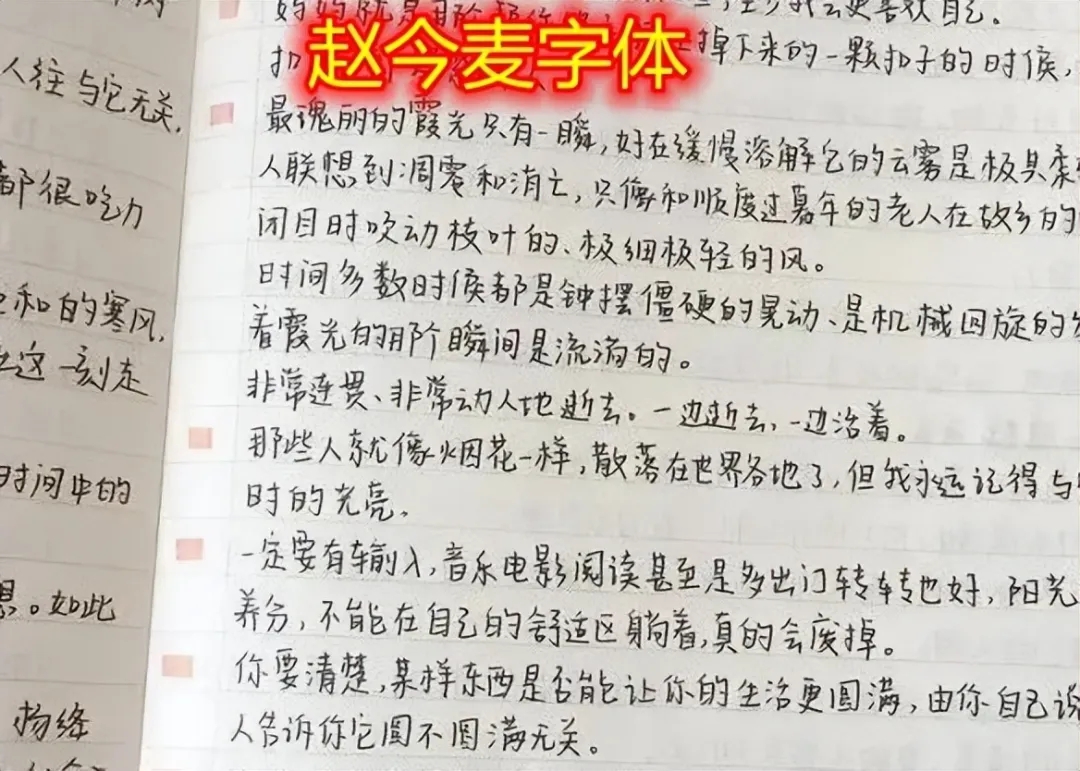 赵今麦字体
人往与它无关,
都很吃力
和的寒风,
这一刻走
时间中的
。如此
杨绛
掉下来的一颗扣子的时候,
最瑰丽的霞光只有一瞬,好在缓慢溶解它的云雾是极具柔
人联想到凋零和消亡,只像和顺度过暮年的老人在故乡的
闭目时吹动枝叶的、极细极轻的风。
时间多数时候都是钟摆僵硬的晃动、是机械回旋的
着霞光的那个瞬间是流淌的。
非常连贯、非常动人地逝去。一边逝去,一边活着。
那些人就像烟花一样,散落在世界各地了,但我永远记得与
时的光亮。
一定要有输入,音乐电影阅读甚至是多出门转转也好,阳光
养分,不能在自己的舒适区躺着,真的会废掉。
你要清楚,某样东西是否能让你的生活更圆满,由你自己说
人告诉你它圆不圆满无关。